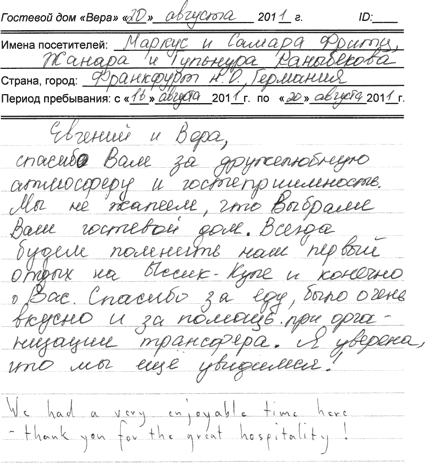 Гостевой дом «Вера» «20» августа 2011 г. ID:
Имена посетителей: Маркус и Самара Фритц,
Жанара и Гульнура Раныбекова
Страна, город: Франкфурт н.О., Германия
Период пребывания: с «16» августа 2011 г. по «20» августа 2011 г.
Евгений и Вера,
спасибо Вам за дружелюбную
атмосферу и гостеприимность.
Мы не жалеем, что выбрали
Ваш гостевой дом. Всегда
будем помнить наш первый
отдых на Иссик-Куле и конечно
о Вас. Спасибо за еду, было очень
вкусно и за помощь при орга-
низации трансфера. Я уверена,
что мы ещё увидимся!
We had a very enjoyable time here
- thank you for the great hospitality!